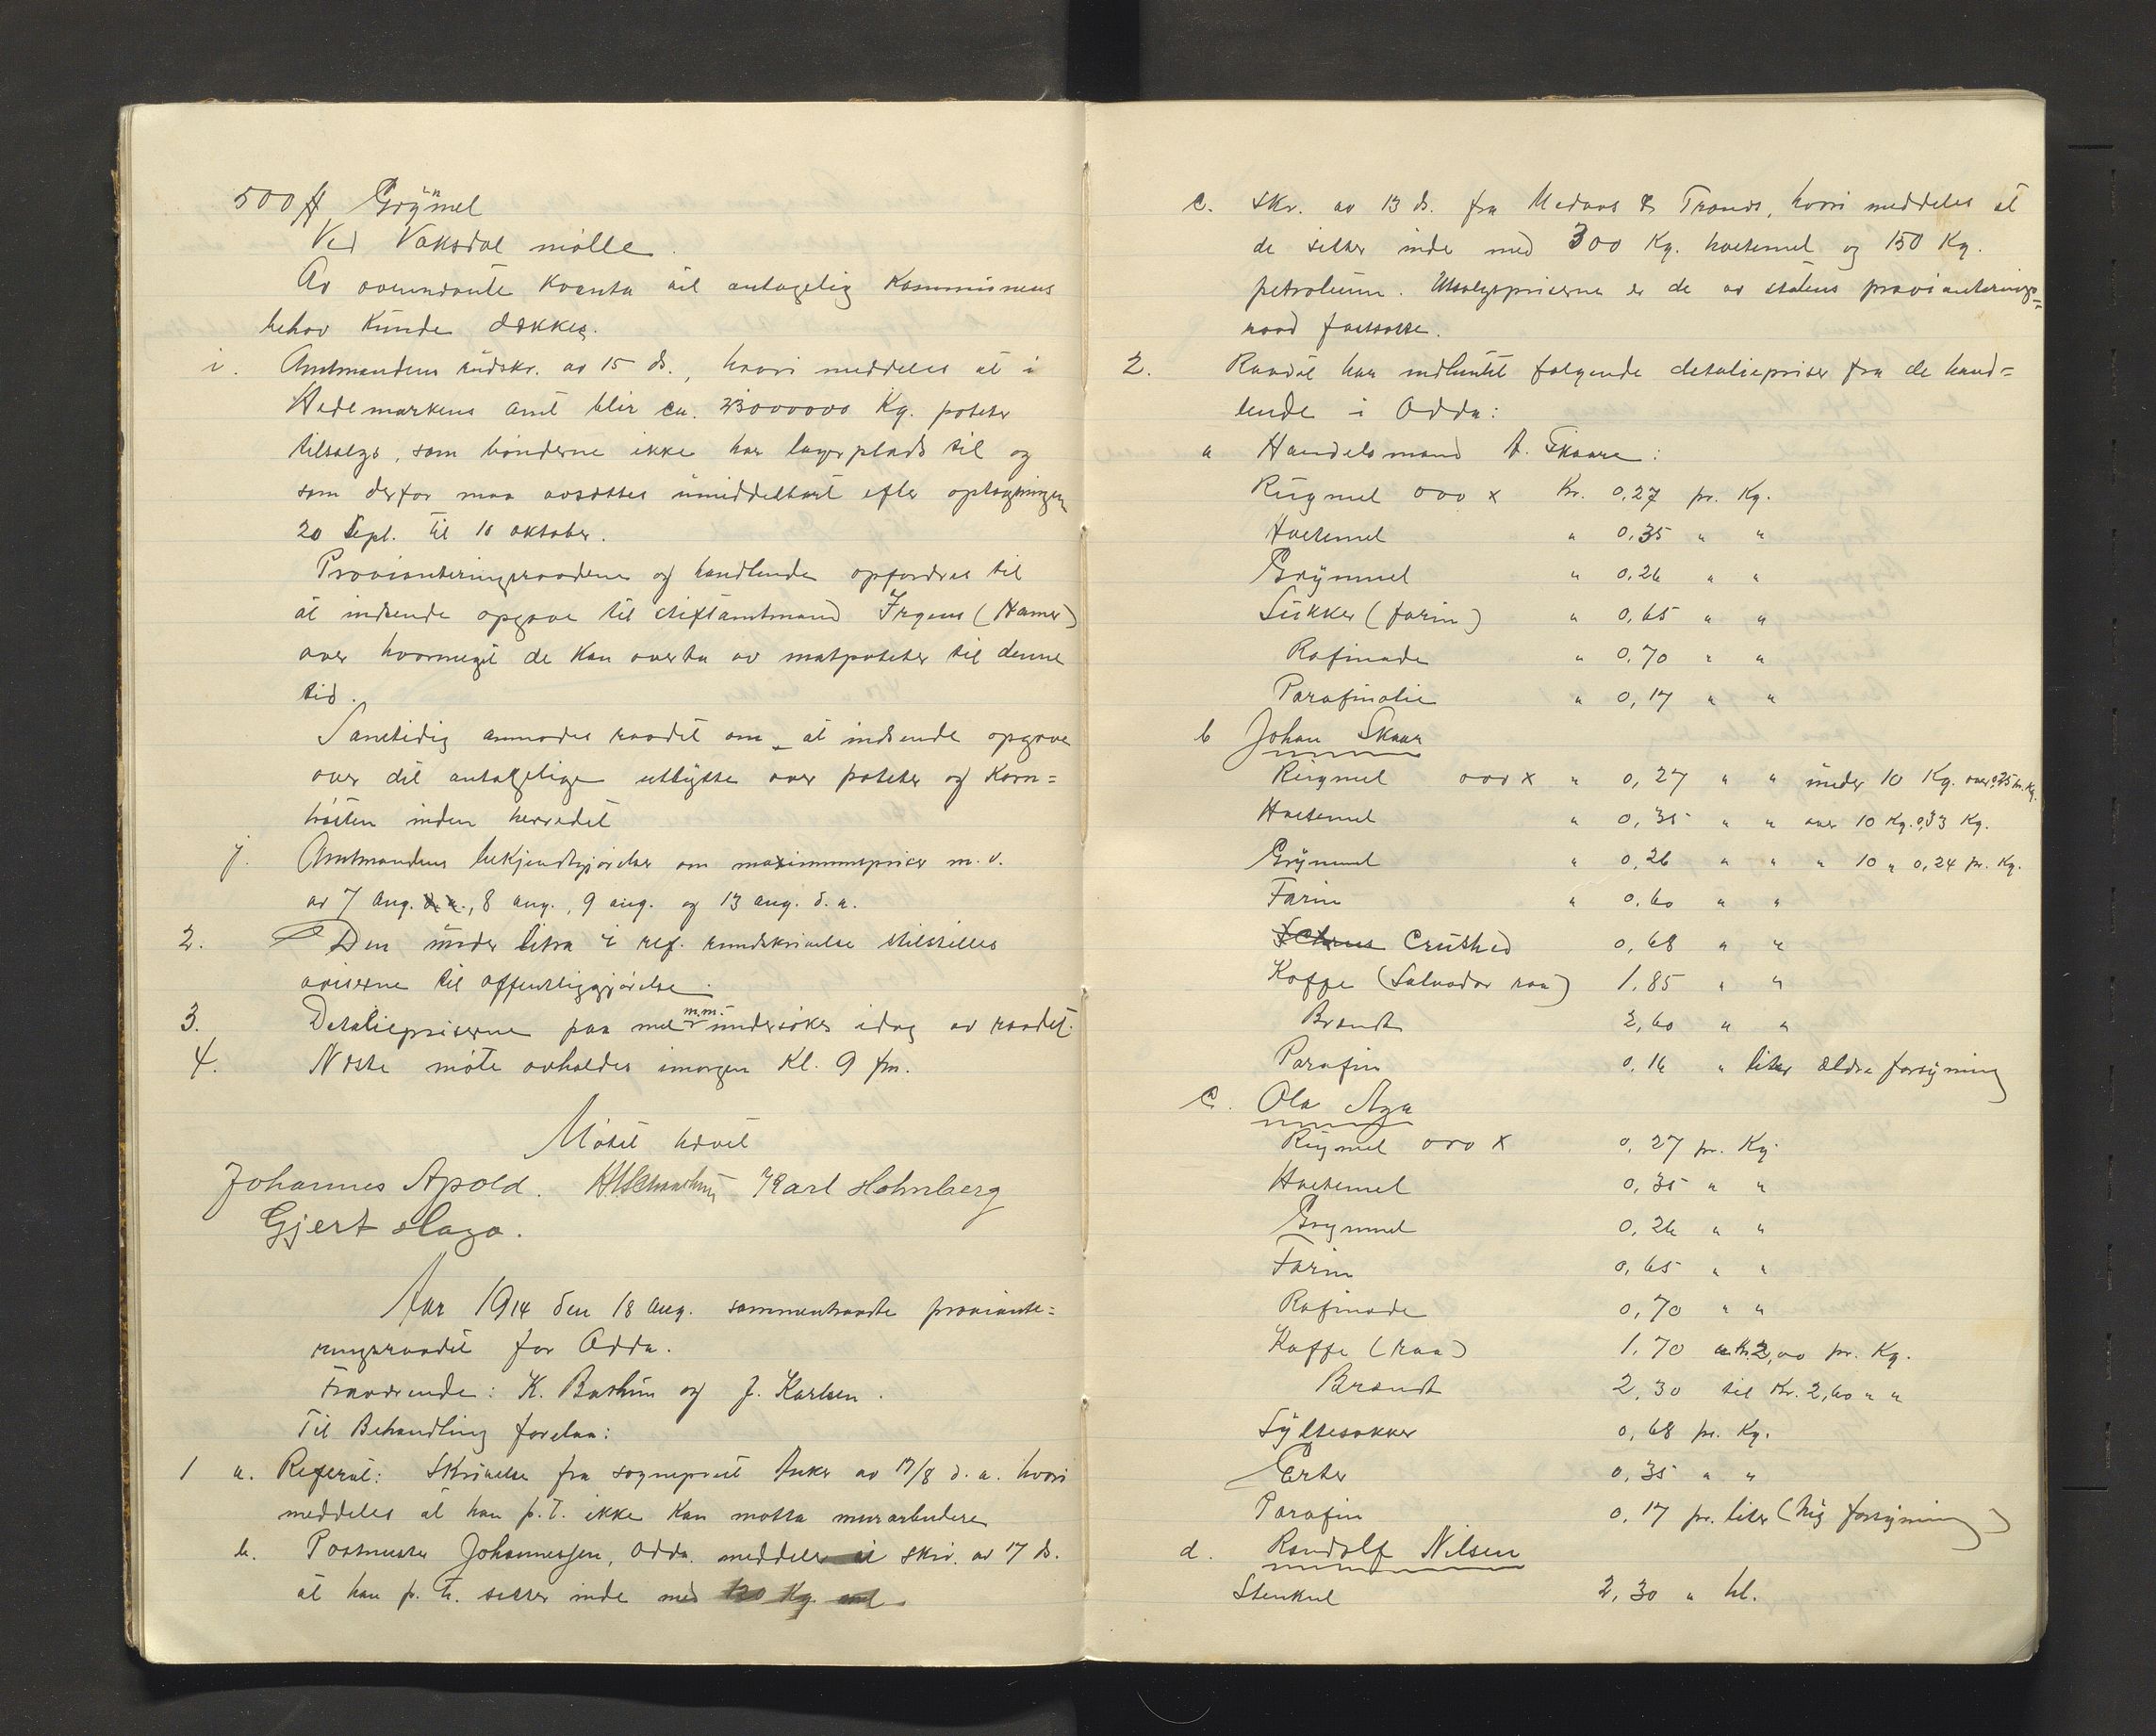 500 ℔ Grÿnmel
Ved Vaksdal mölle.
Av ovennævnte kvanta vil antagelig kommunens
behov kunde dækkes.
i. Amtmandens rundskr. av 15 ds., hvori meddeles at i
Hedemarkens amt blir ca. 23000000 Kg. poteter
tilsalgs, som bönderne ikke har lagerplads til og
som derfor maa avsættes umiddelbart efter optagningen
20 Sept. til 10 oktober.
Provianteringsraadene og handlende opfordres til
at indsende opgave til stiftamtmand Irgens (Hamar)
over hvormeget de kan overta av matpoteter til denne
tid.
Samtidig anmodes raadet om at indsende opgave
over det antagelige utbytte over poteter og korn=
hösten inden herredet
j. Amtmandens bekjendtgjörelser om maximumspriser m.v.
av 7 aug. d.a., 8 aug., 9 aug. og 13 aug. d.a.
2. Den under litra i ref. rundskrivelse tilstilles
aviserne til offentliggjörelse.
3. Detaliepriserne paa mel m.m. undersökes idag av raadet.
4. Næste möte avholdes imorgen Kl. 9 fm.
Mötet hævet
Johannes Apold. Karl Holmberg
Gjert Haga.
Aar 1914 den 18 aug. sammentraadte proviante=
ringsraadet for Odda.
Fraværende: K. Bashim og J. Karlsen.
Til Behandling forelaa:
1 a. Referat: Skrivelse fra sogneprest Anker av 17/8 d.a. hvori
meddeles at han p.t. ikke kan motta murarbeidere
b. Postmester Johannessen, Odda. meddeler i skr. av 17 ds.
at han p.t. sitter inde med 120 Kg. mel
c. Skr. av 13 ds. fra Medaas & Traneo, hvori meddeles at
de sitter inde med 300 Kg. hvetemel og 150 Kg.
petroleum. Utsalgspriserne er de av statens provianterings=
raad fastsatte.
2. Raadet har indhentet fölgende detaliepriser fra de hand=
lende i Odda:
a Handelsmand A. Skaare:
Rugmel 000 x Kr. 0,27 pr. Kg.
Hvetemel " 0,35 " "
Grÿnmel " 0,26 " "
Sukker (farin) " 0,65 " "
Rafinade " 0,70 " "
Parafinolie " 0,17 " "
b Johan Skaar
Rugmel 000 x " 0,27 " " under 10 Kg. over 0,25 pr. Kg.
Hvetemel " 0,35 " " over 10 Kg. 0,33 Kg.
Grÿnmel " 0,26 " " " 10 " 0,24 pr. Kg.
Farin " 0,60 " "
Crushed 0,68 " "
Kaffe (Salvador raa) 1,85 " "
Brændt 2,60 " "
Parafin 0,16 " liter ældre forsÿning
c. Ola Aga
Rugmel 000 x 0,27 pr. Kg.
Hvetemel 0,35 " "
Grynmel 0,26 " "
Farin 0,65 " "
Rafinade 0,70 " "
Kaffe (raa) 1,70 a Kr. 2,00 pr. Kg.
Brændt 2,30 til Kr. 2,60 " "
Sÿltesukker 0,68 pr. Kg.
Erter 0,35 " "
Parafin 0,17 pr. liter (nÿ forsÿning)
d. Randolf Nilsen
Stenkul 2,30 " hl.